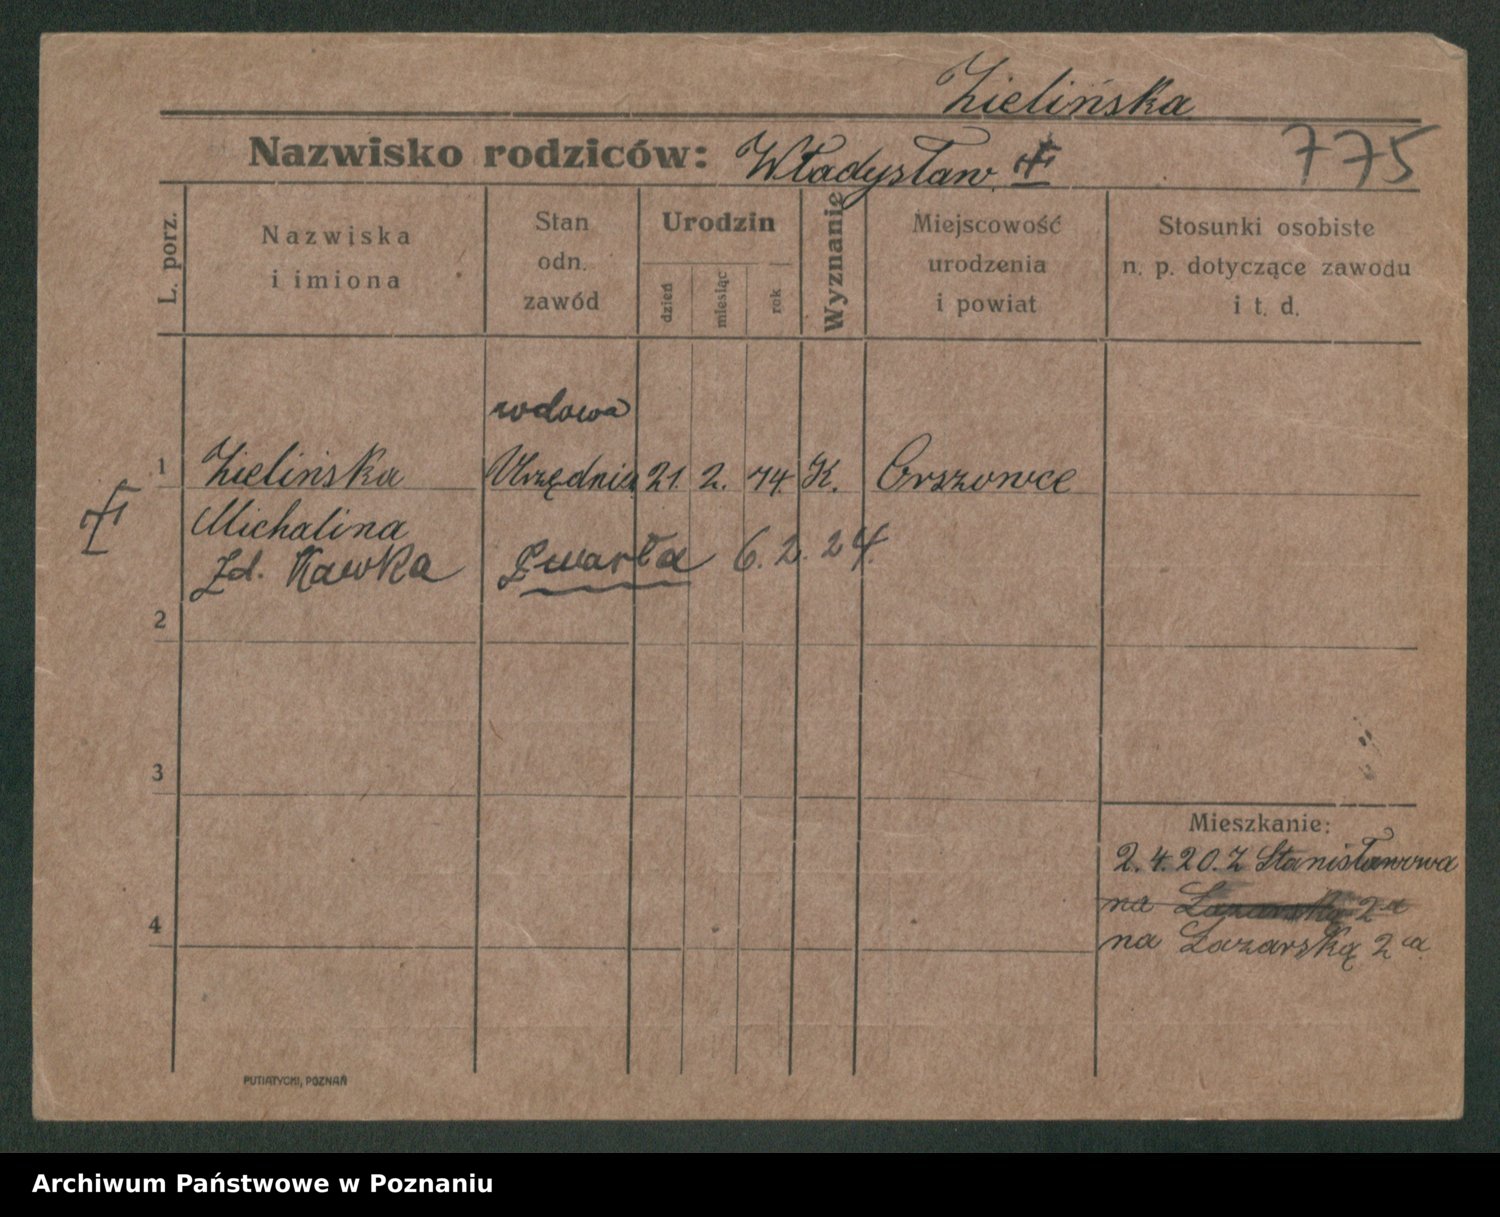 Zielińska
Nazwisko rodziców: Władysław
775
L. porz.
Nazwiska
i imiona
Stan
odn.
zawód
Urodzin
dzień
miesiąc
rok
Wyznanie
Miejscowość
urodzenia
i powiat
Stosunki osobiste
n. p. dotyczące zawodu
i t. d.
wdowa
1 Zielińska 21. 2. 74. K.
Michalina
Zd. Kawka Zmarła 6. 2. 24.
2
3
4
Mieszkanie:
2. 4. 20. Z Stanisławowa
na Łazarską 2a
na Łazarską 2a.
PUTIATYCKI, POZNAŃ
Archiwum Państwowe w Poznaniu